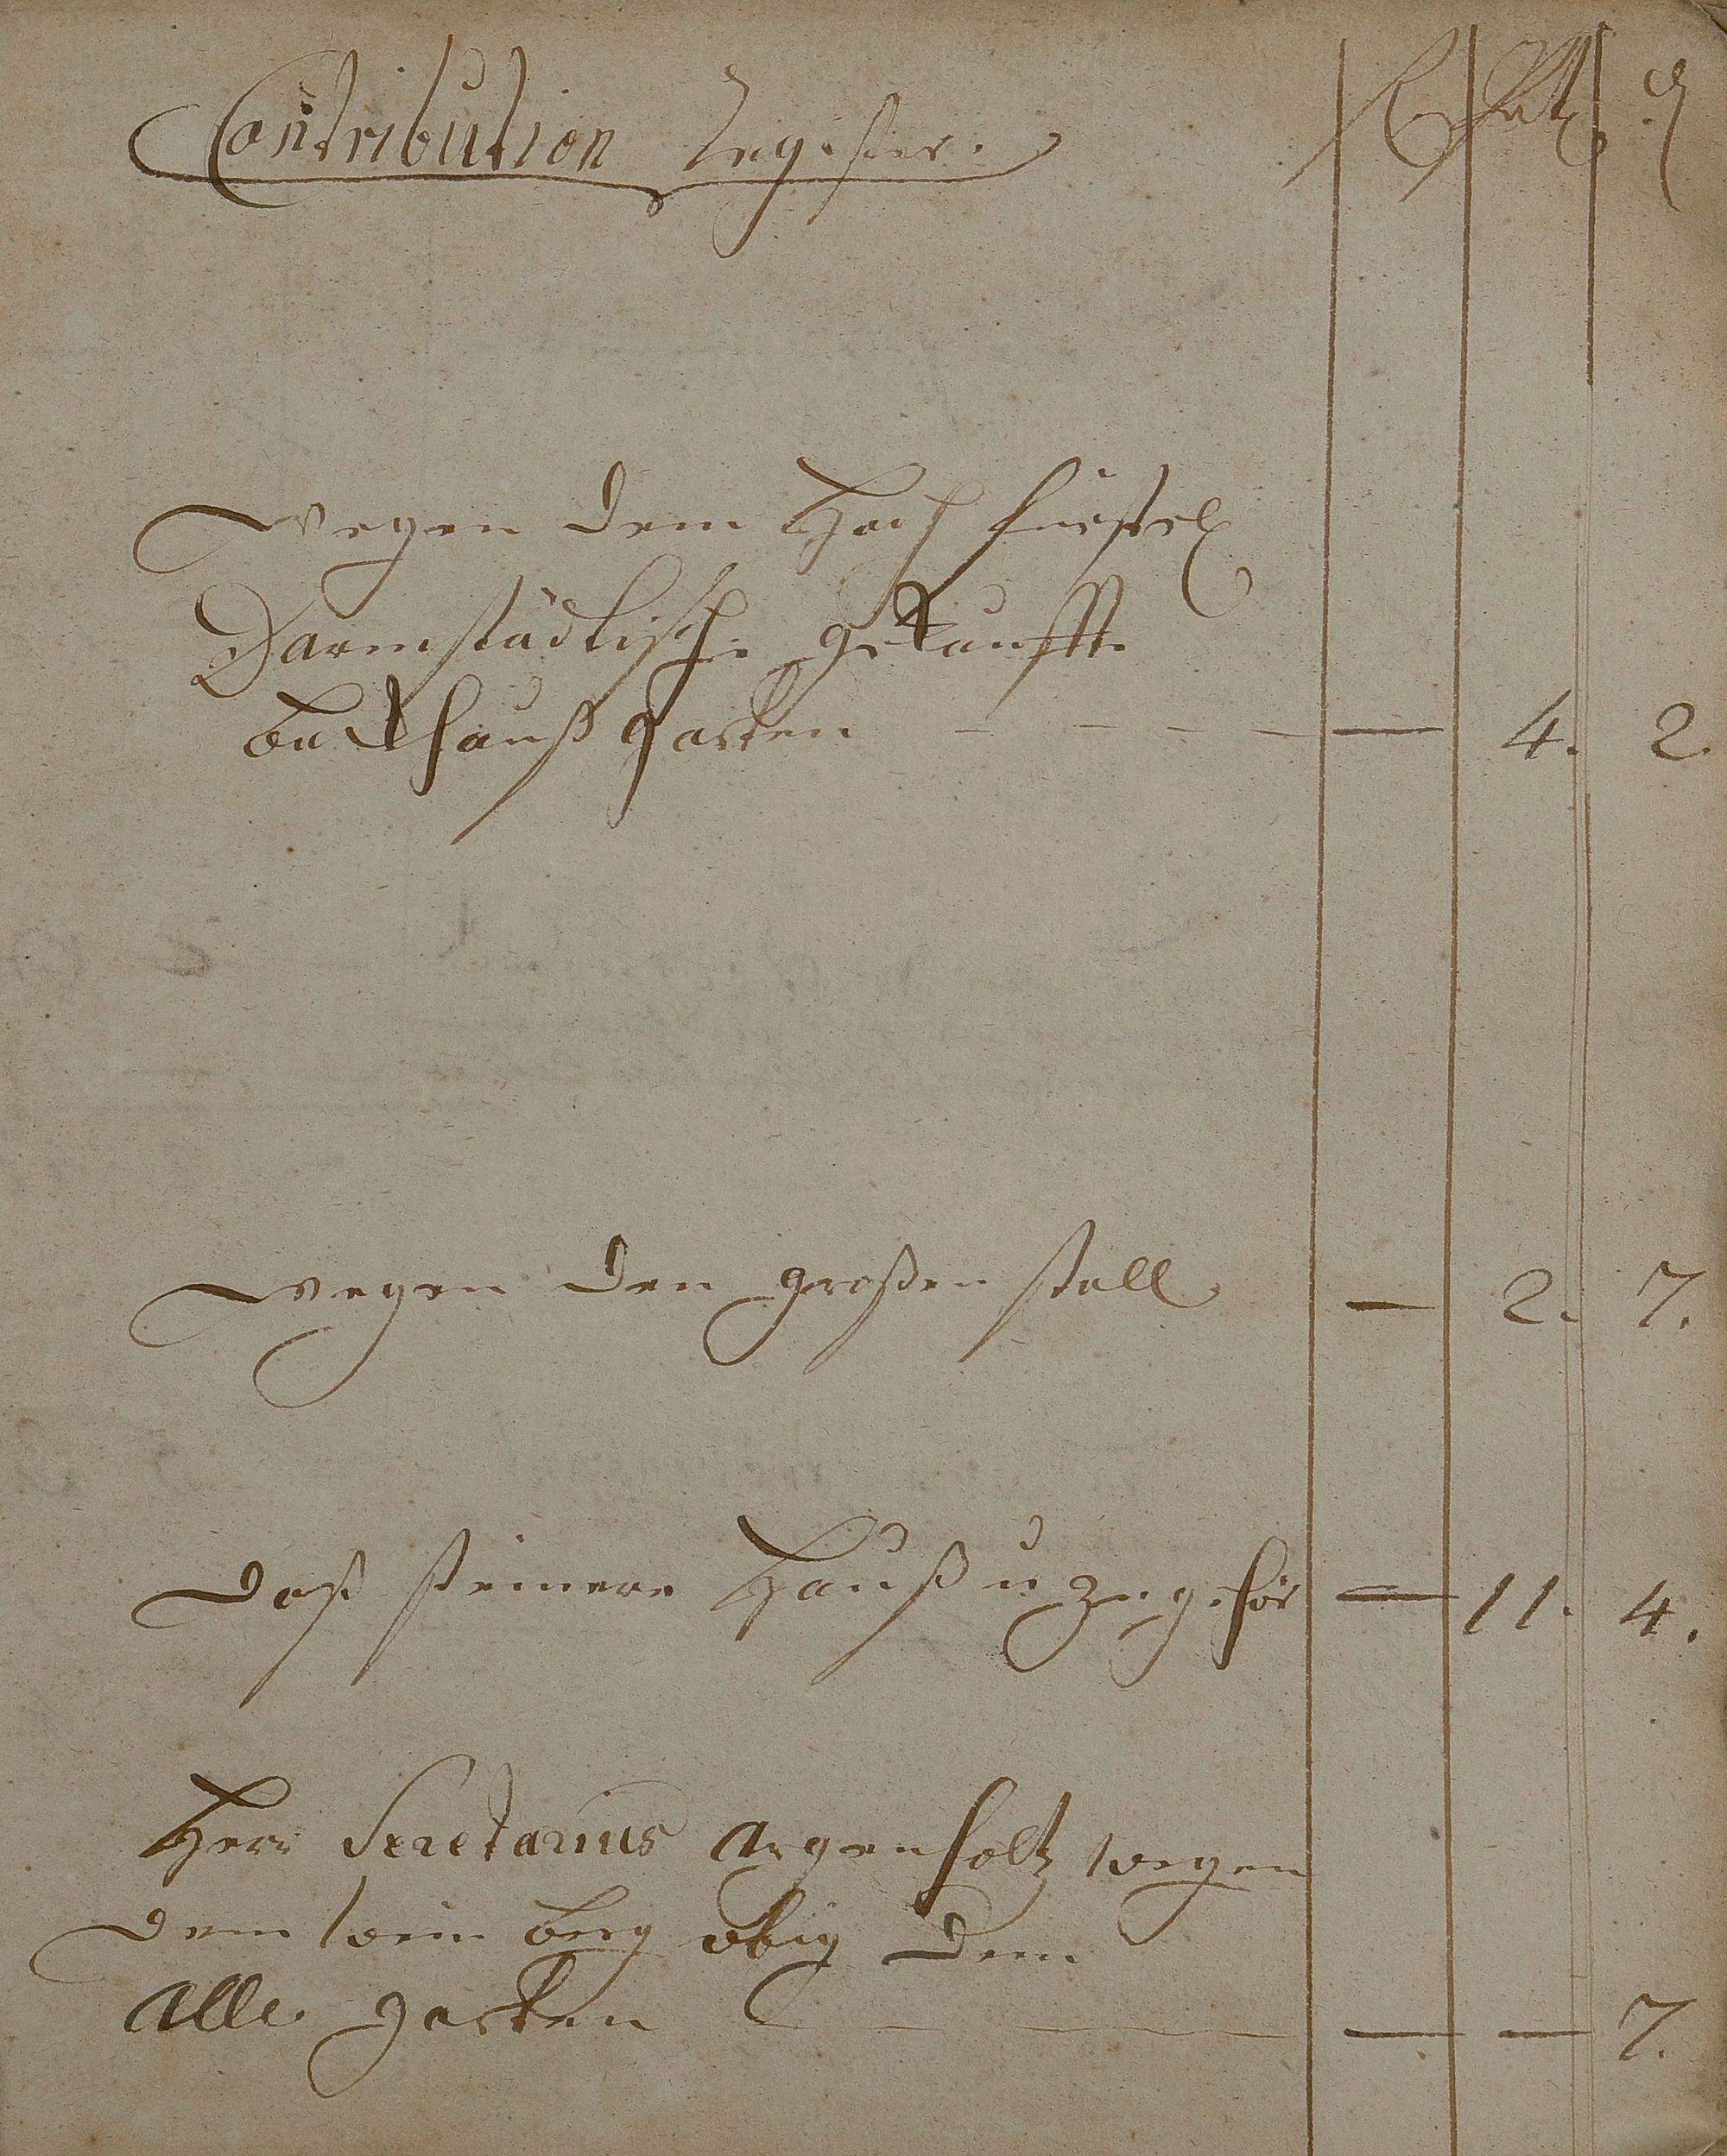 Contribution Register. fl. Alb. ₰
wegen dem Hoch fürstl.
Darmstädtische gekaufften
backhauß garten — 4. 2.
wegen den großen stall — 2. 7.
Daß steinere Hauß u zugehör — 11. 4.
Herr Secretarius Argenholtz wegen
dem wein berg obig dem
Alle garten — — 7.